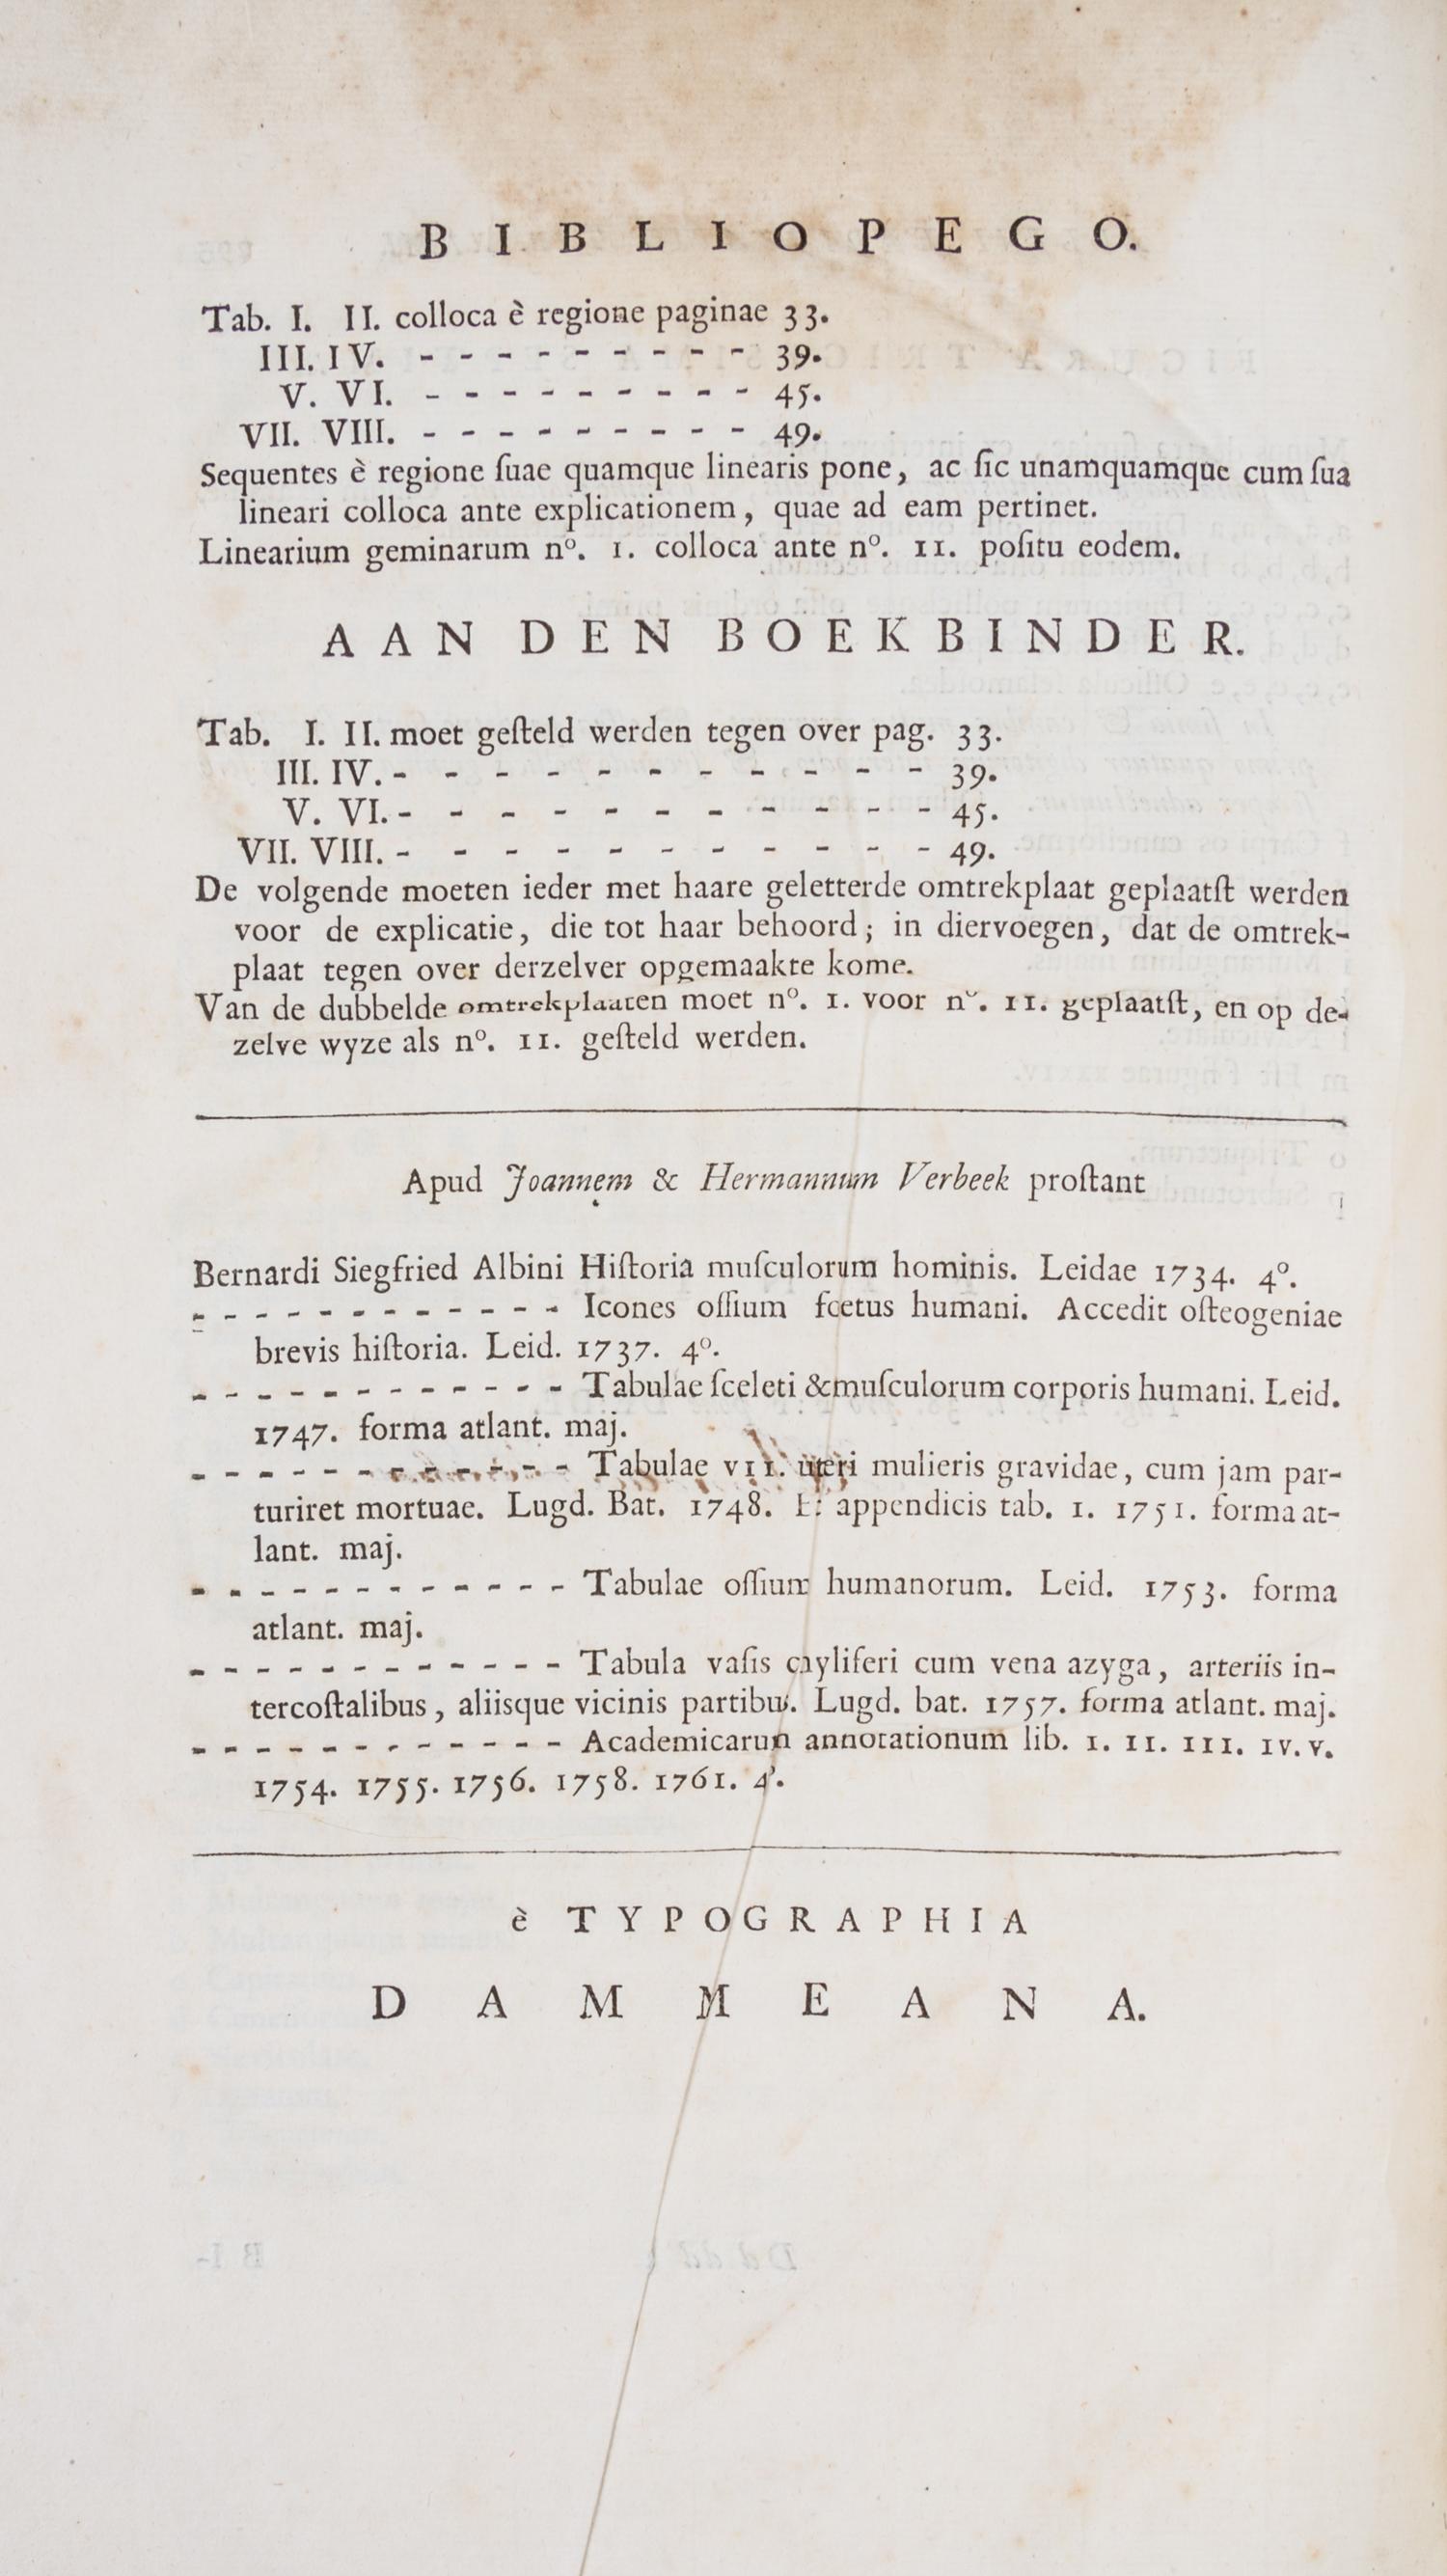 BIBLIOPEGO.
Tab. I. II. colloca è regione paginae 33.
III. IV. - - - - - - - - - 39.
V. VI. - - - - - - - - - 45.
VII. VIII. - - - - - - - - - 49.
Sequentes è regione ſuae quamque linearis pone, ac ſic unamquamque cum ſua
lineari colloca ante explicationem, quae ad eam pertinet.
Linearium geminarum nº. I. colloca ante nº. II. poſitu eodem.
AAN DEN BOEKBINDER.
Tab. I. II. moet geſteld werden tegen over pag. 33.
III. IV. - - - - - - - - - - - 39.
V. VI. - - - - - - - - - - - 45.
VII. VIII. - - - - - - - - - - - 49.
De volgende moeten ieder met haare geletterde omtrekplaat geplaatſt werden
voor de explicatie, die tot haar behoord; in diervoegen, dat de omtrek-
plaat tegen over derzelver opgemaakte kome.
Van de dubbelde omtrekplaaten moet nº. I. voor nº. II. geplaatſt, en op de-
zelve wyze als nº. II. geſteld werden.
Apud Joannem & Hermannum Verbeek proſtant
Bernardi Siegfried Albini Hiſtoria muſculorum hominis. Leidae 1734. 4º.
- - - - - - - - - - - - Icones oſſium fœtus humani. Accedit oſteogeniae
brevis hiſtoria. Leid. 1737. 4º.
- - - - - - - - - - - - Tabulae ſceleti & muſculorum corporis humani. Leid.
1747. forma atlant. maj.
- - - - - - - - - - - - Tabulae VII. uteri mulieris gravidae, cum jam par-
turiret mortuae. Lugd. Bat. 1748. Et appendicis tab. I. 1751. forma at-
lant. maj.
- - - - - - - - - - - - Tabulae oſſium humanorum. Leid. 1753. forma
atlant. maj.
- - - - - - - - - - - - Tabula vaſis chyliferi cum vena azyga, arteriis in-
tercoſtalibus, aliisque vicinis partibus. Lugd. bat. 1757. forma atlant. maj.
- - - - - - - - - - - - Academicarum annotationum lib. I. II. III. IV. V.
1754. 1755. 1756. 1758. 1761. 4º.
è TYPOGRAPHIA
DAMMEANA.